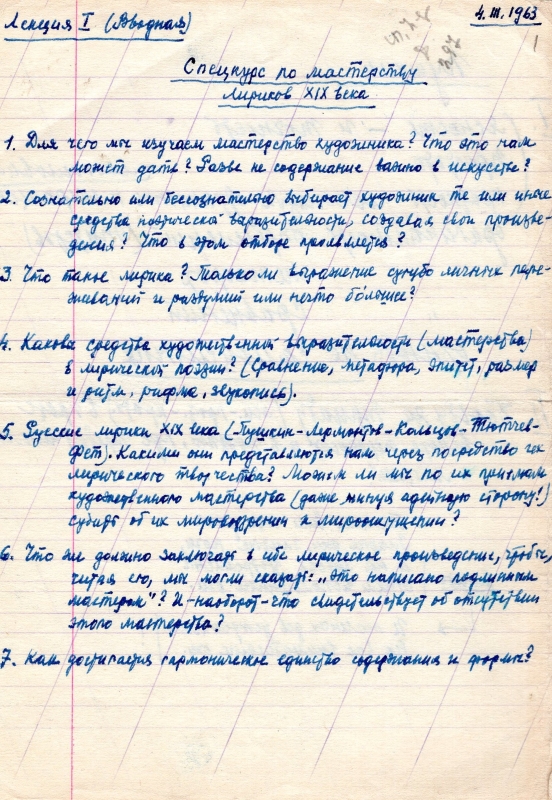 Лекция I (Вводная)
4.III.1963
1
Спецкурс по мастерству
лириков XIX века
1. Для чего мы изучаем мастерство художника? Что это нам
может дать? Разве не содержание важно в искусстве?
2. Сознательно или бессознательно выбирает художник те или иные
средства поэтической выразительности, создавая свои произве-
дения? Что в этом отборе проявляется?
3. Что такое лирика? Только ли выражение сугубо личных пере-
живаний и раздумий или нечто бо́льшее?
4. Каковы средства художественной выразительности (мастерства)
в лирической поэзии? (Сравнение, метафора, эпитет, размер
и ритм, рифма, звукопись).
5. Русские лирики XIX века (Пушкин-Лермонтов-Кольцов-Тютчев-
Фет). Какими они представляются нам через посредство их
лирического творчества? Можем ли мы по их приемам
художественного мастерства (даже минуя идейную сторону!)
судить об их мировоззрении и мироощущении?
6. Что же должно заключать в себе лирическое произведение, чтобы,
читая его, мы могли сказать: „Это написано подлинным
мастером"? И-наоборот-что свидетельствует об отсутствии
этого мастерства?
7. Как достигается гармоническое единство содержания и формы?